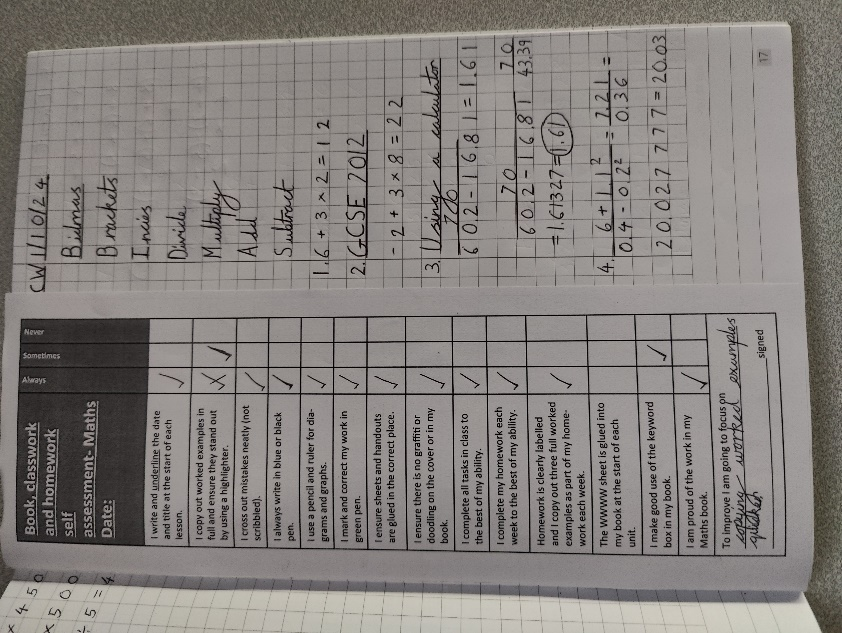 Book, classwork
and homework
self
assessment- Maths
Date:
Always
Sometimes
Never
I write and underline the date
and title at the start of each
lesson.
I copy out worked examples in
full and ensure they stand out
by using a highlighter.
I cross out mistakes neatly (not
scribbled).
I always write in blue or black
pen.
I use a pencil and ruler for dia-
grams and graphs.
I mark and correct my work in
green pen.
I ensure sheets and handouts
are glued in the correct place.
I ensure there is no graffiti or
doodling on the cover or in my
book.
I complete all tasks in class to
the best of my ability.
I complete my homework each
week to the best of my ability.
Homework is clearly labelled
and I copy out three full worked
examples as part of my home-
work each week.
The WWWW sheet is glued into
my book at the start of each
unit.
I make good use of the keyword
box in my book.
I am proud of the work in my
Maths book.
To improve I am going to focus on
copying worked examples
signed
CW 1/10/24
Bidmas
Brackets
Incies
Divide
Multiply
Add
Subtract
1. 6 + 3 × 2 = 12
2. GCSE 2012
- 2 + 3 × 8 = 22
3. Using a calculator
60.2 - 16.81 = 1.61
70 70
60.2 - 16.81 43.39
= 1.61327 = 1.61
4. 6 + 1.1² = 7.21 =
0.4 - 0.2² 0.36
20.027 777 = 20.03
17
× 450
× 500
÷ 5 = 4